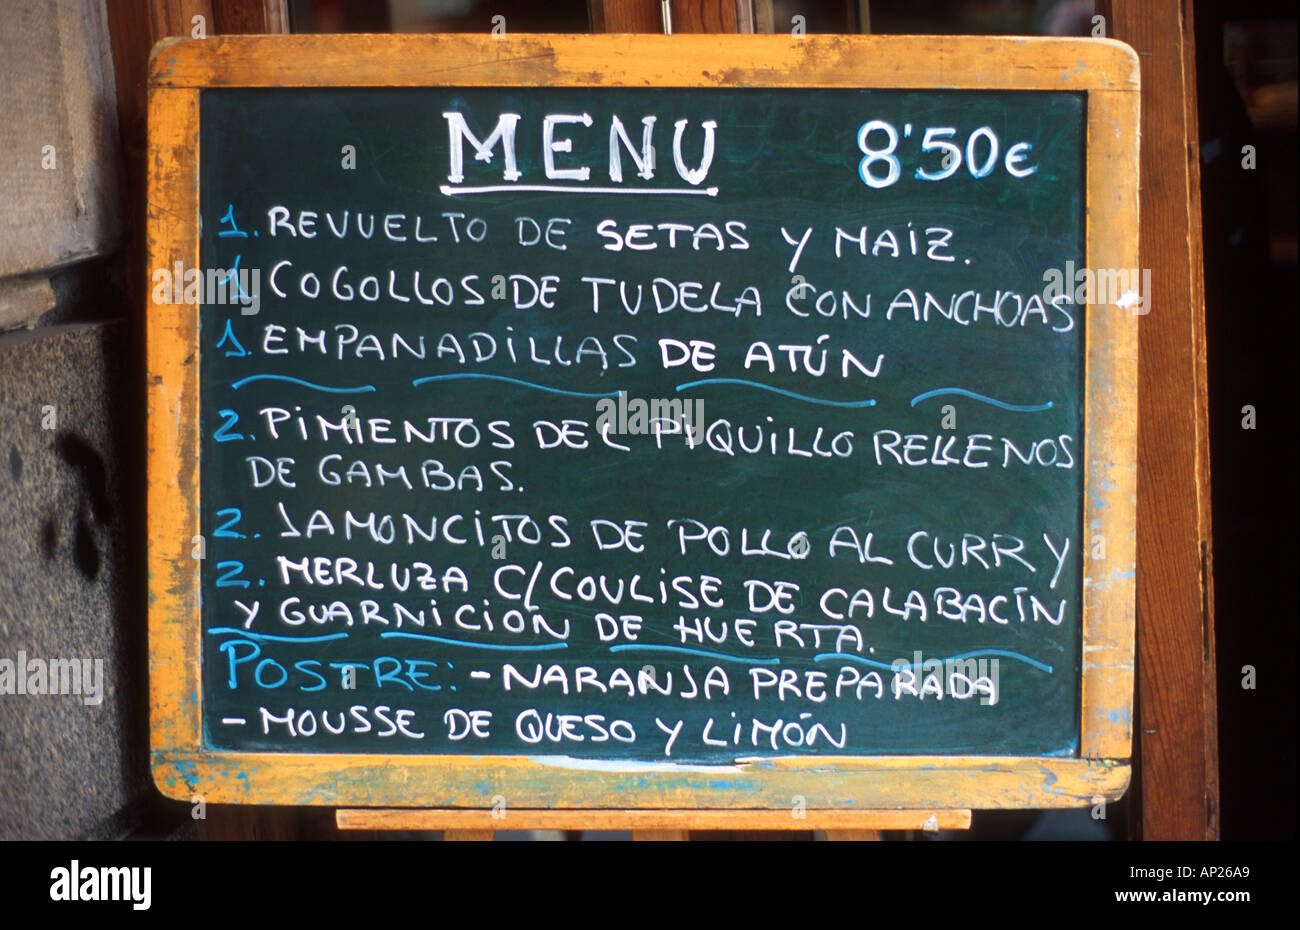 MENU 8'50€
1. REVUELTO DE SETAS Y MAIZ.
1. COGOLLOS DE TUDELA CON ANCHOAS
1. EMPANADILLAS DE ATÚN
2. PIMIENTOS DEL PIQUILLO RELLENOS
DE GAMBAS.
2. JAMONCITOS DE POLLO AL CURRY
2. MERLUZA C/COULISE DE CALABACÍN
Y GUARNICIÓN DE HUERTA.
POSTRE: - NARANJA PREPARADA
- MOUSSE DE QUESO Y LIMÓN
a
a
a
a
a
alamy
Image ID: AP26A9
www.alamy.com